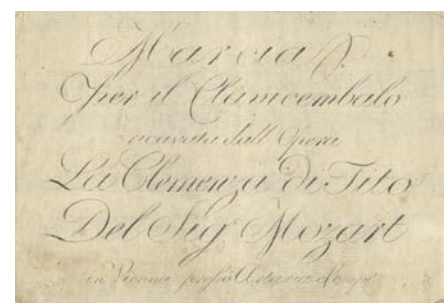 Marcia
per il Clavicembalo
ricavata dall' Opera
La Clemenza di Tito
Del Sig. Mozart
in Vienna presso Artaria e Comp.